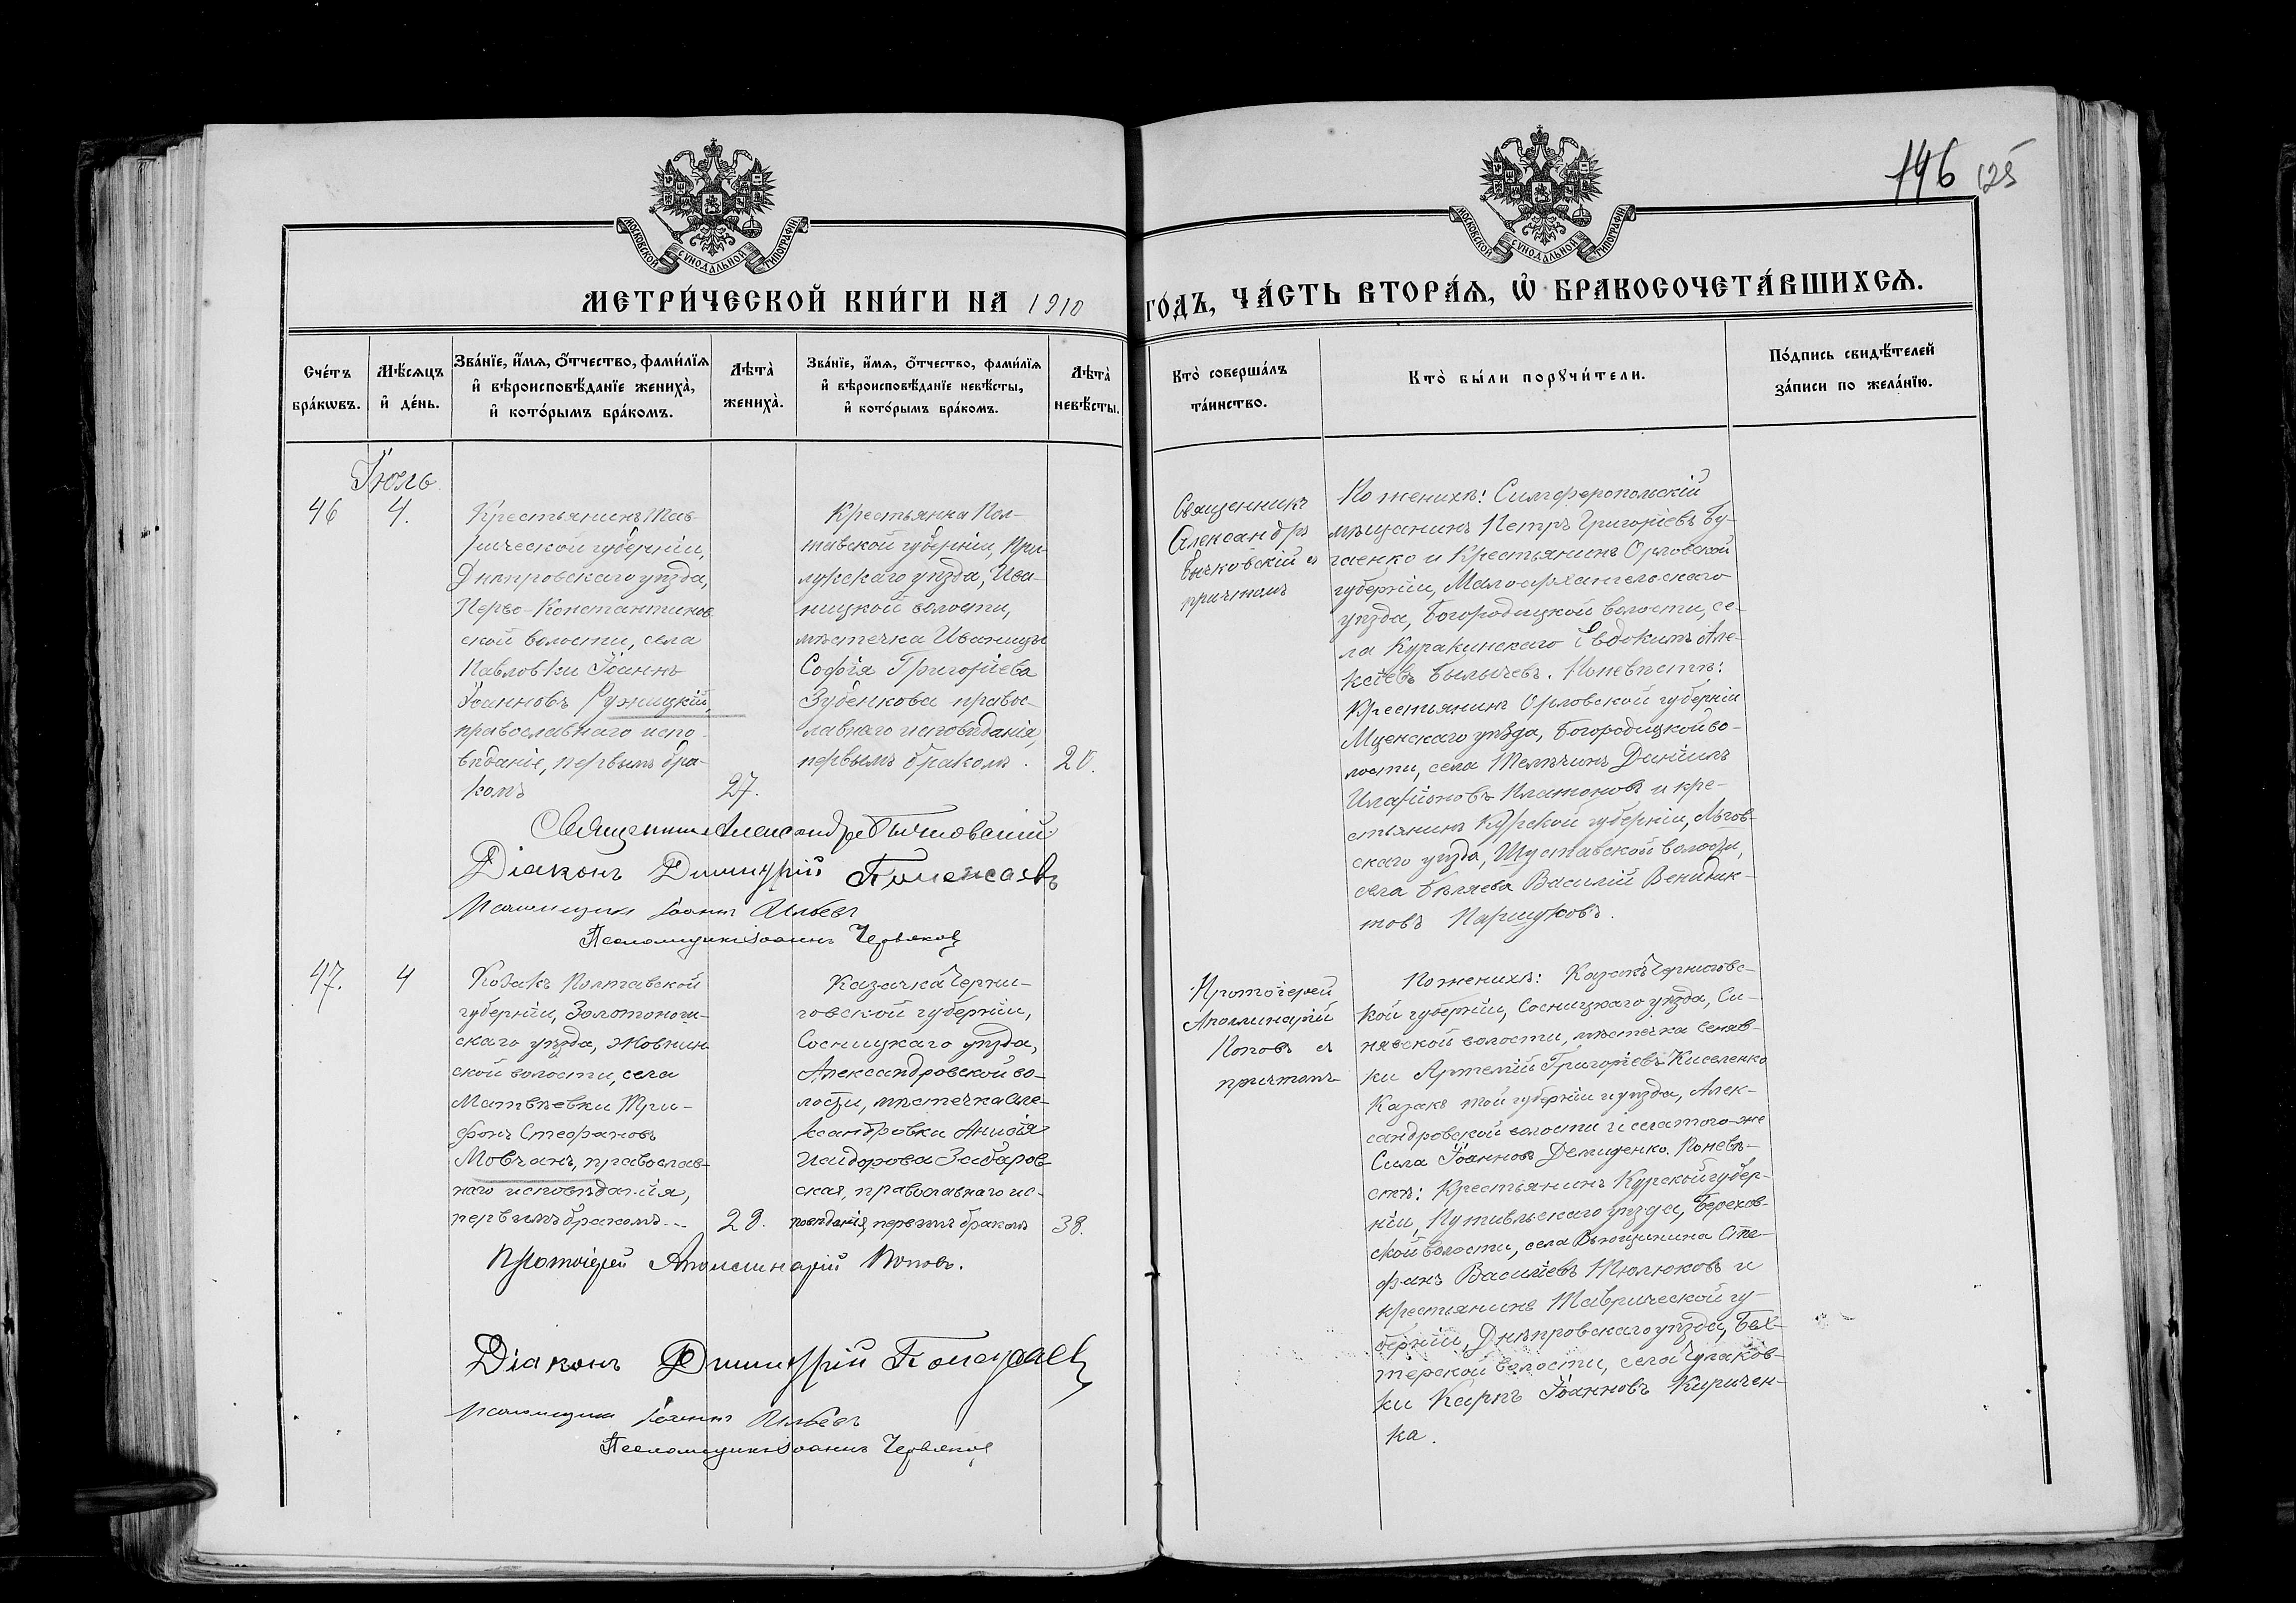 146 125
МОСКОВСКОЙ СУНОДАЛЬНОЙ ТИПОГРАФІИ
МОСКОВСКОЙ СУНОДАЛЬНОЙ ТИПОГРАФІИ
МЕТРИ́ЧЕСКОЙ КНИ́ГИ НА 1910
ГО́ДЪ, ЧА́СТЬ ВТОРА́Ѧ, Ѽ БРАКОСОЧЕТА́ВШИХСѦ.
Сче́тъ
бра́кѡвъ.
Мѣ́сѧцъ
и҆ де́нь.
Зва́нїе, и҆́мѧ, ѻ҆́тчество, фами́лїѧ
и҆ вѣроисповѣ́данїе жениха̀,
и҆ кото́рымъ бра́комъ.
Лѣта̀
жениха̀.
Зва́нїе, и҆́мѧ, ѻ҆́тчество, фами́лїѧ
и҆ вѣроисповѣ́данїе невѣ́сты,
и҆ кото́рымъ бра́комъ.
Лѣта̀
невѣ́сты.
Кто̀ соверша́лъ
та́инство.
Кто̀ бы́ли порꙋчи́тели.
По́дпись свидѣ́телей
за́писи по жела́нїю.
Іюль
46
4.
Крестьянинъ Тав-
рической губерніи,
Днѣпровскаго уѣзда,
Перво-Константинов
ской волости, села
Павловки Іоаннъ
Іоанновъ Ружицкій,
православнаго испо-
вѣданіе, первымъ бра-
комъ
27.
Крестьянка Пол-
тавской губерніи, При-
лукскаго уѣзда, Ива-
ницкой волости,
мѣстечка Иваницы
Софія Григоріева
Зубенкова правос-
лавнаго исповѣданія,
первымъ бракомъ.
20.
Священникъ
Александръ
Бычковскій съ
причтомъ
По женихѣ: Симферопольскій
мѣщанинъ Петръ Григоріевъ Бу-
гаенко и Крестьянинъ Орловской
губерніи, Малоархангельскаго
уѣзда, Богородицкой волости, се-
ла Куракинскаго Евдокимъ Але-
ксіевъ Былычевъ. По невѣстѣ:
Крестьянинъ Орловской губерніи
Мценскаго уѣзда, Богородицкой во-
лости, села Телѣчинъ Даніилъ
Иларіоновъ Платоновъ и кре-
стьянинъ Курской губерніи, Льгов-
скаго уѣзда, Шустовской волости,
села Бѣляева Василій Венидик-
товъ Паршуковъ.
Священникъ Александръ Бычковскій
Діаконъ Димитрій
Псаломщикъ Іоаннъ Ильбевъ
Псаломщикъ Іоаннъ Червяковъ
47.
4
Козакъ Полтавской
губерніи, Золотоноши-
скаго уѣзда, Жовнин
ской волости, села
Матвѣевки Три-
фонъ Стефановъ
Мовчанъ, православ-
наго исповѣданія,
первымъ бракомъ...
28.
Казачка Черни-
говской губерніи,
Сосницкаго уѣзда,
Александровской во-
лости, мѣстечка Але-
ксандровки Анисія
Исидорова Забаров-
ская, православнаго ис-
повѣданія, первымъ бракомъ
38.
Протоіерей
Аполлинарій
Поповъ съ
причтомъ
По женихѣ: Казакъ Черниговс-
кой губерніи, Сосницкаго уѣзда, Си-
нявской волости, мѣстечка Синяв-
ки Артемій Григоріевъ Киселенко
Казакъ той губерніи и уѣзда, Алек-
сандровской волости и села того-же
Сила Іоанновъ Демиденко. По невѣ-
стѣ: Крестьянинъ Курской губер-
ніи, Путивльскаго уѣзда, Берехов-
ской волости, села Вьющинина Сте-
фанъ Василіевъ Тюлюковъ и
крестьянинъ Таврической гу-
берніи, Днѣпровскаго уѣзда, Бех-
терской волости, села Чулаков-
ки Карпъ Іоанновъ Киричен-
ка.
Протоіерей Аполлинарій Поповъ.
Діаконъ Димитрій
Псаломщикъ Іоаннъ Ильбевъ
Псаломщикъ Іоаннъ Червяковъ